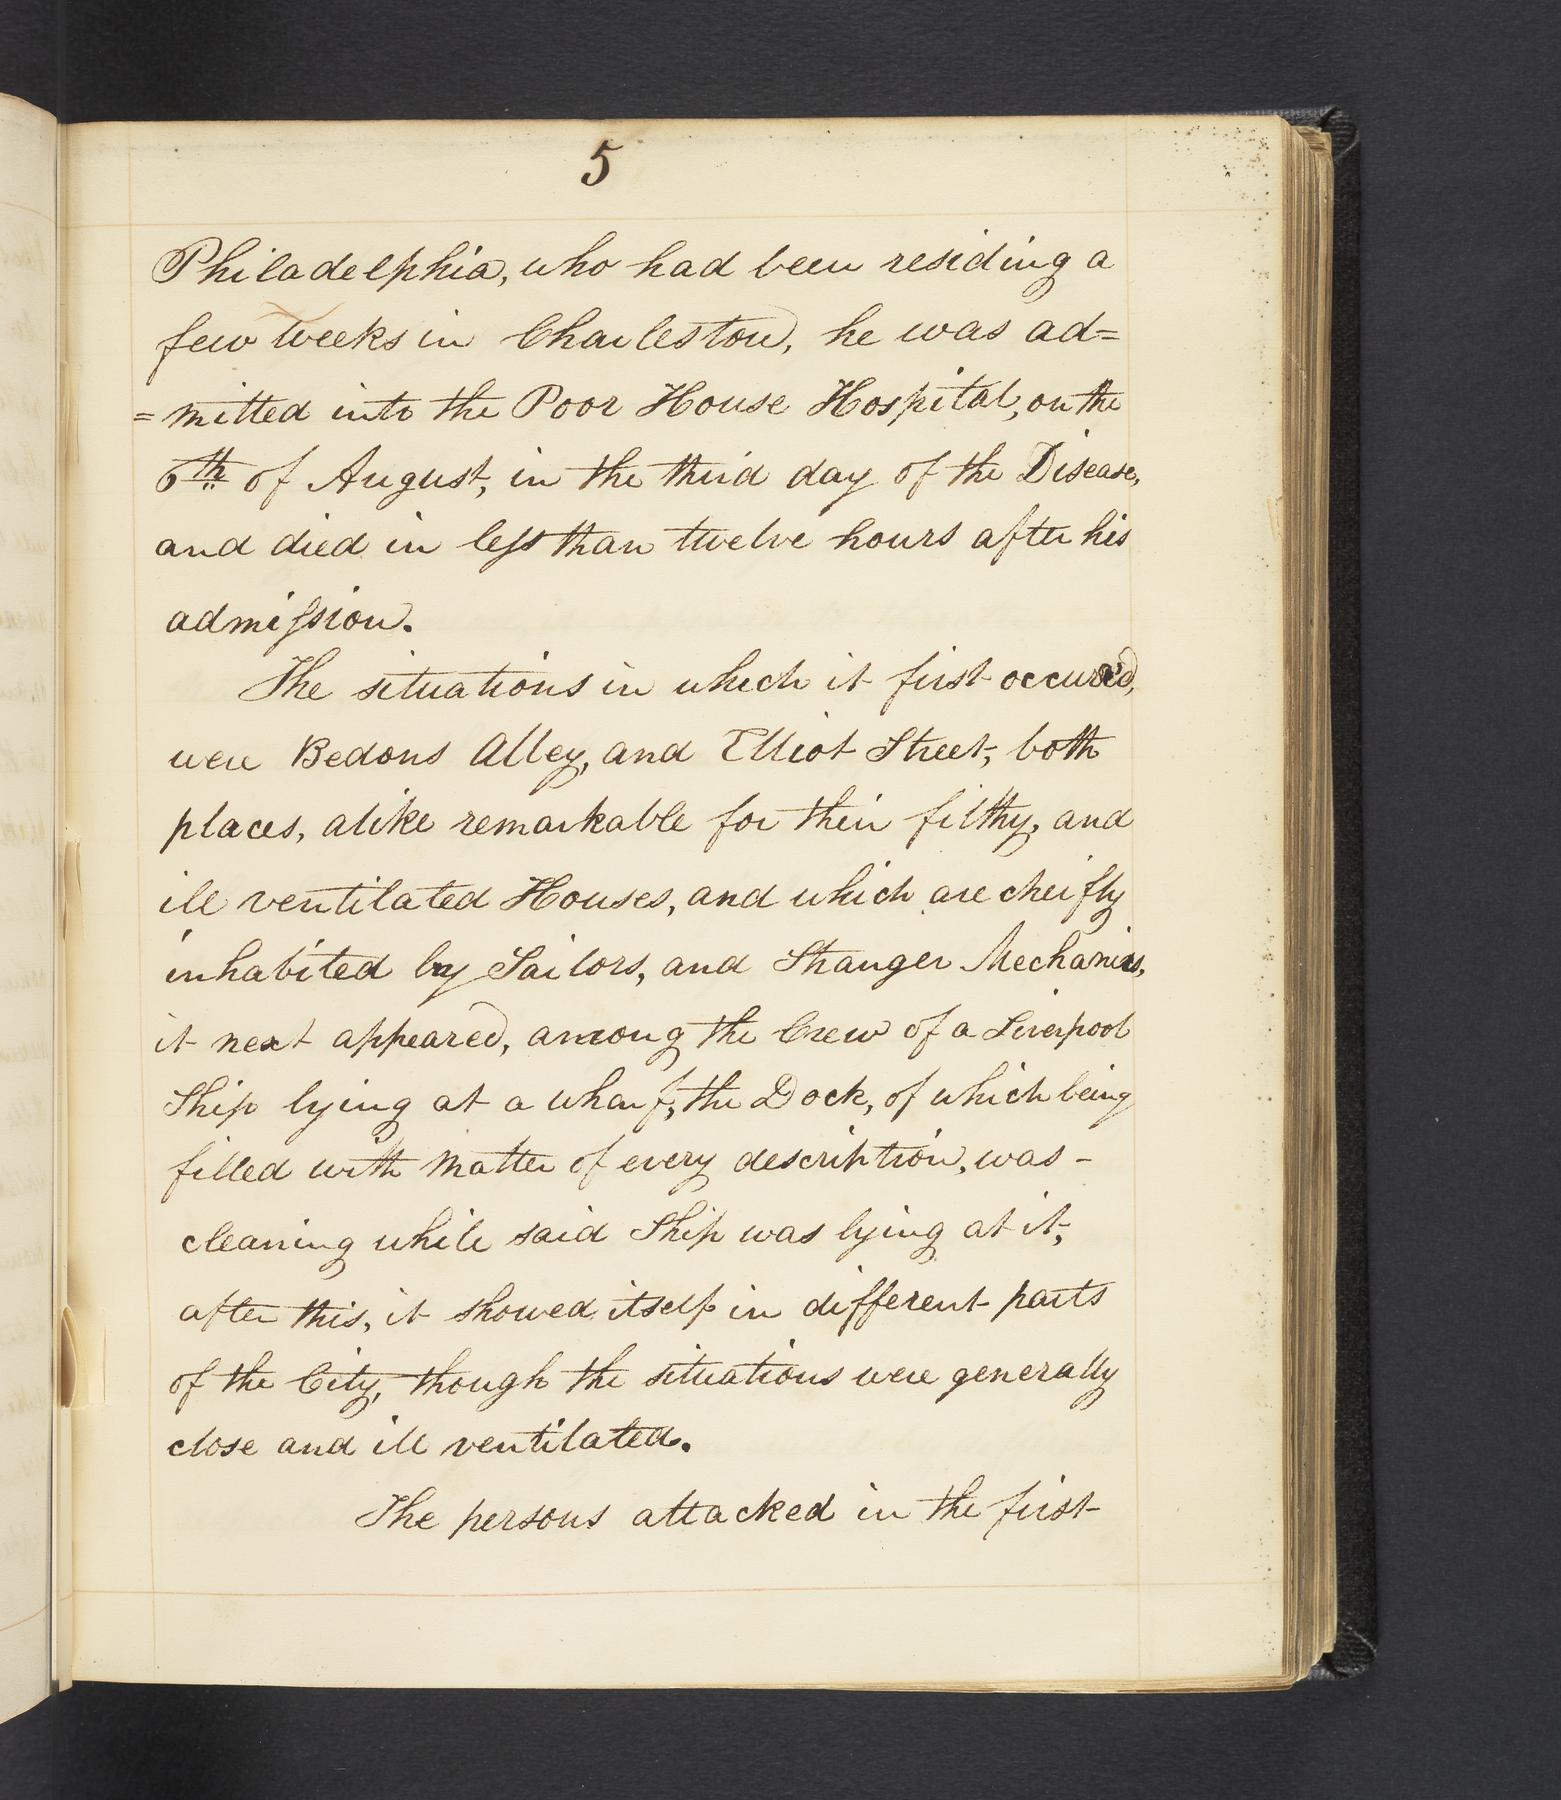 5
Philadelphia, who had been residing a
few weeks in Charleston, he was ad=
=mitted into the Poor House Hospital, on the
6th of August, in the third day of the Disease,
and died in less than twelve hours after his
admission.
The situations in which it first occured,
were Bedons Alley, and Elliot Street, both
places, alike remarkable for their filthy, and
ill ventilated Houses, and which are cheifly
inhabited by Sailors, and Stranger Mechanics,
it next appeared, among the Crew of a Liverpool
Ship lying at a wharf, the Dock, of which being
filled with matter of every description, was -
cleaning while said Ship was lying at it,
after this, it showed itself in different parts
of the City, though the situations were generally
close and ill ventilated.
The persons attacked in the first